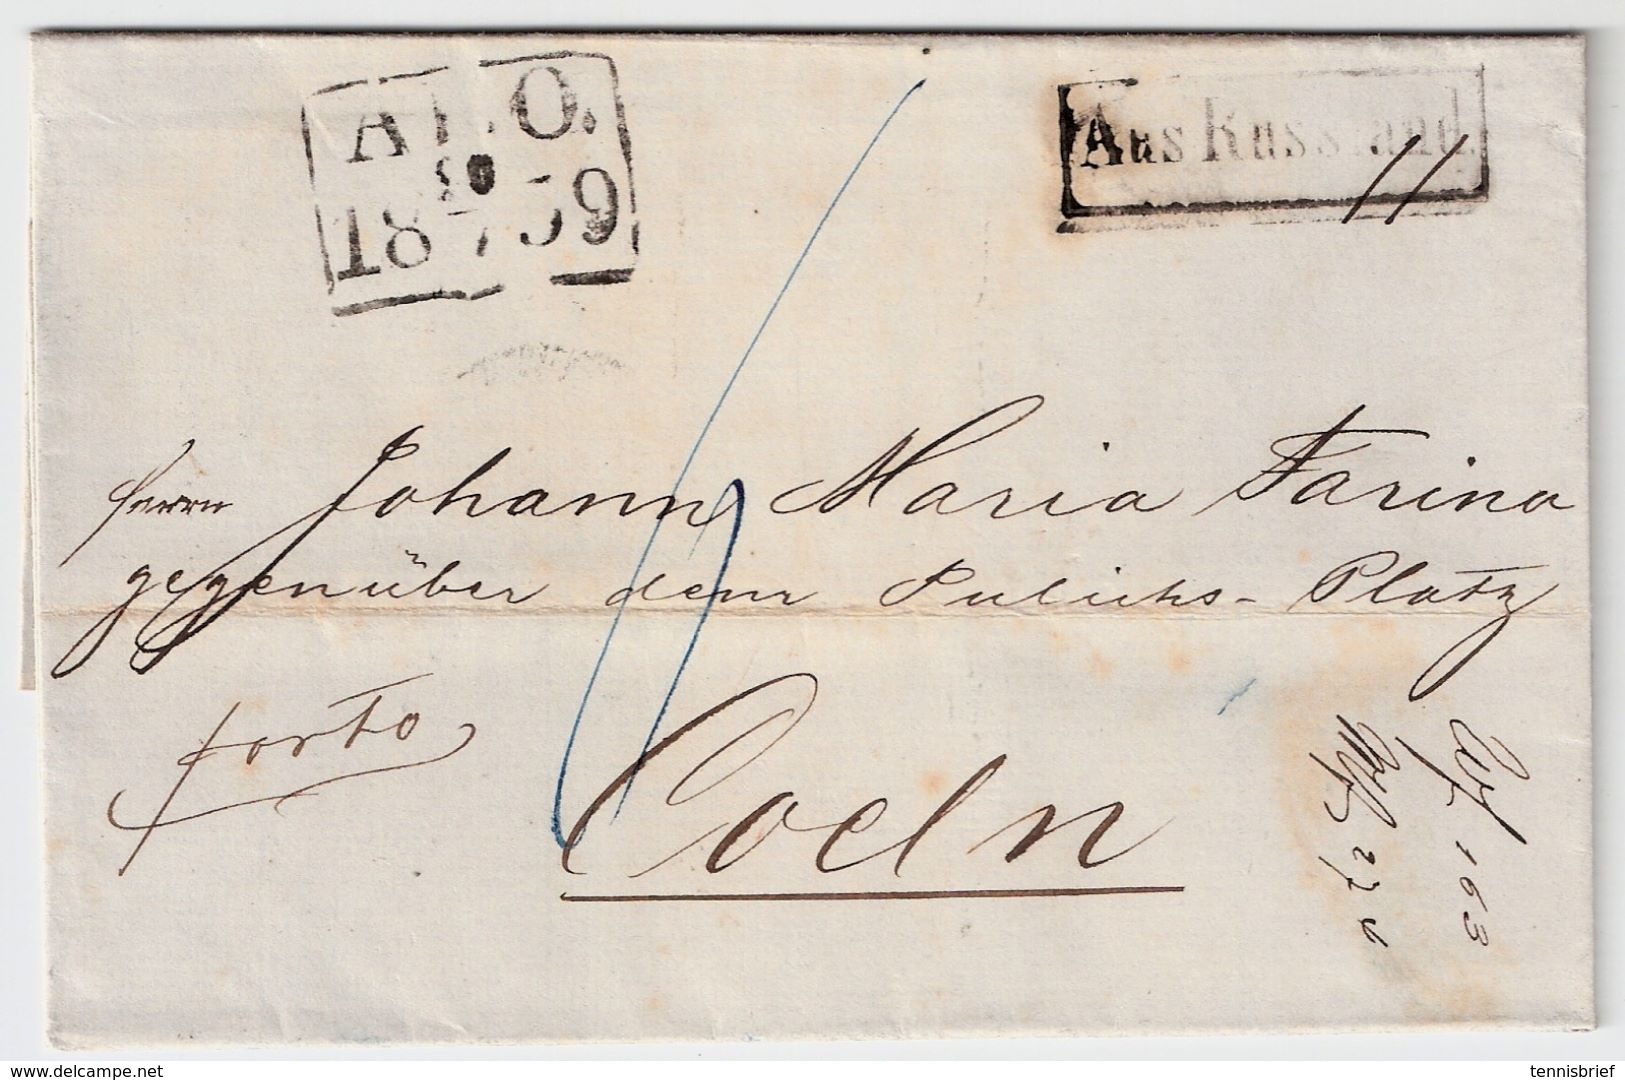 A.P.O.
18 7 59
Aus Russland.
11
Herrn Johann Maria Farina
gegenüber dem Julichs-Platz
Coeln
porto
163
delcampe.net
tennisbrief